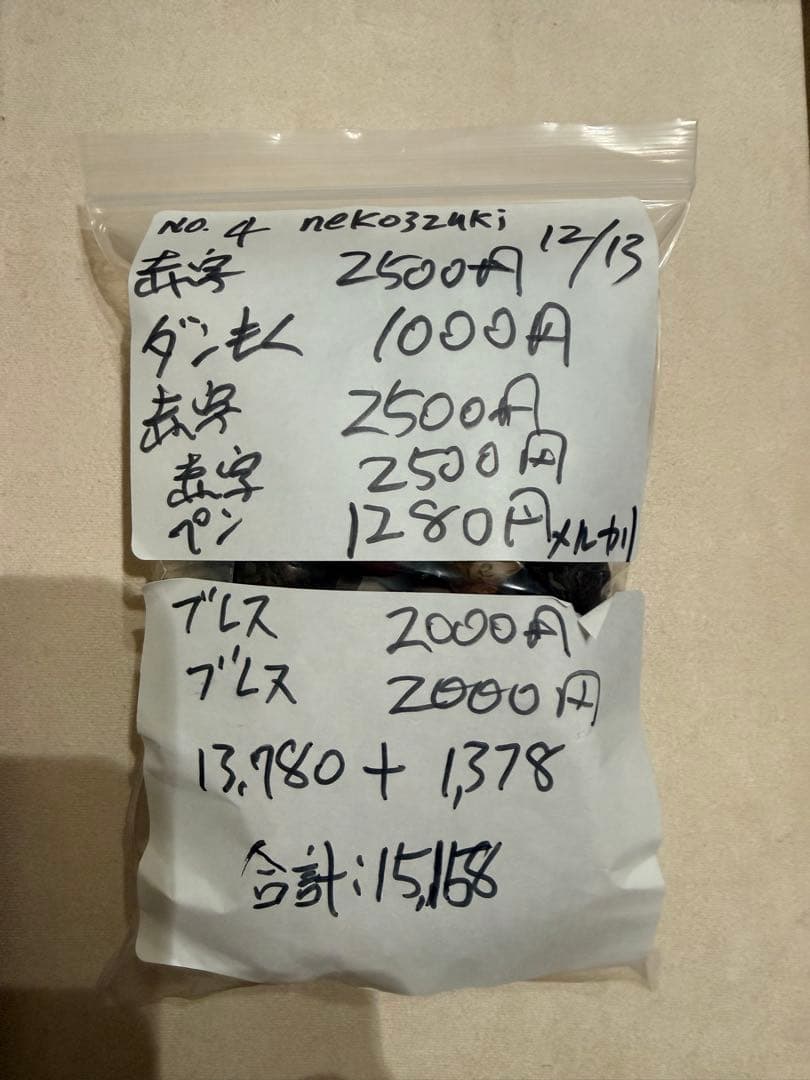 NO. 4 nekozuki 12/13
赤字 2500円
ダンもく 1000円
赤字 2500円
赤字 2500円
ペン 1280円メルカリ
ブレス 2000円
ブレス 2000円
13,780 + 1,378
合計:15,158